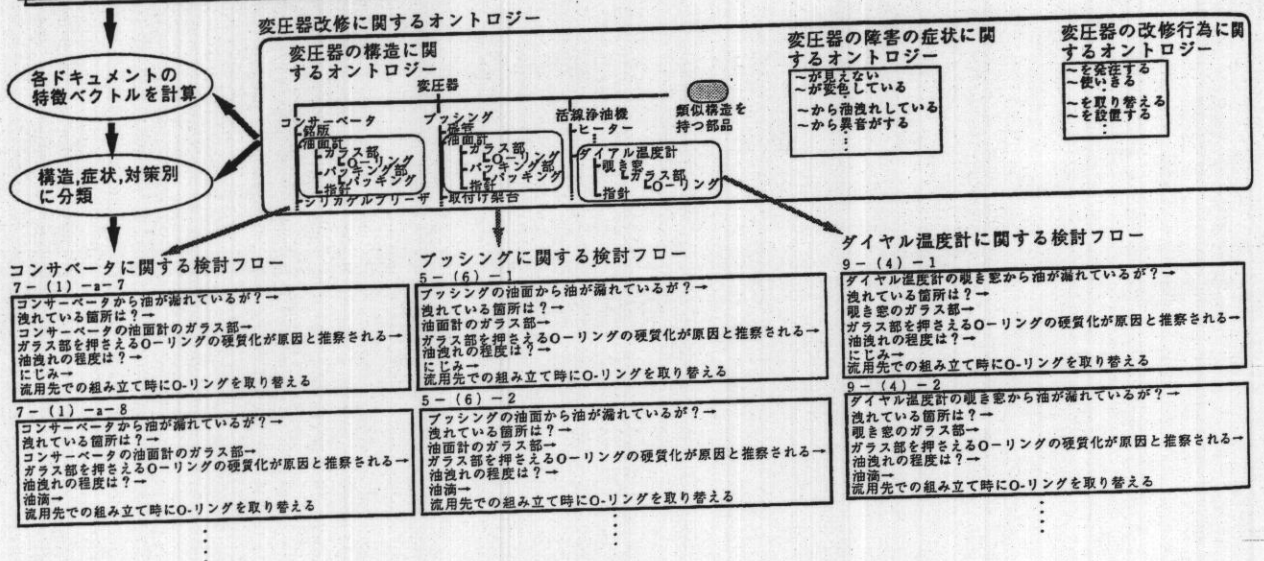 変圧器改修に関するオントロジー
各ドキュメントの
特徴ベクトルを計算
構造,症状,対策別
に分類
変圧器の構造に関
するオントロジー
変圧器
コンサーベータ
銘版
油面計
ガラス部
O-リング
パッキング部
パッキング
指針
シリカゲルブリーザ
ブッシング
油面計
ガラス部
O-リング
パッキング部
パッキング
指針
取付け架台
活線浄油機
ヒーター
ダイアル温度計
覗き窓
ガラス部
O-リング
指針
類似構造を
持つ部品
変圧器の障害の症状に関
するオントロジー
〜が見えない
〜が変色している
〜から油洩れしている
〜から異音がする
変圧器の改修行為に関
するオントロジー
〜を発注する
〜使いきる
〜を取り替える
〜を設置する
コンサベータに関する検討フロー
7-(1)-a-7
コンサーベータから油が漏れているが?→
洩れている箇所は?→
コンサーベータの油面計のガラス部→
ガラス部を押さえるO-リングの硬質化が原因と推察される→
油洩れの程度は?→
にじみ→
流用先での組み立て時にO-リングを取り替える
7-(1)-a-8
コンサーベータから油が漏れているが?→
洩れている箇所は?→
コンサーベータの油面計のガラス部→
ガラス部を押さえるO-リングの硬質化が原因と推察される→
油洩れの程度は?→
油滴→
流用先での組み立て時にO-リングを取り替える
ブッシングに関する検討フロー
5-(6)-1
ブッシングの油面から油が漏れているが?→
洩れている箇所は?→
油面計のガラス部→
ガラス部を押さえるO-リングの硬質化が原因と推察される→
油洩れの程度は?→
にじみ→
流用先での組み立て時にO-リングを取り替える
5-(6)-2
ブッシングの油面から油が漏れているが?→
洩れている箇所は?→
油面計のガラス部→
ガラス部を押さえるO-リングの硬質化が原因と推察される→
油洩れの程度は?→
油滴→
流用先での組み立て時にO-リングを取り替える
ダイヤル温度計に関する検討フロー
9-(4)-1
ダイヤル温度計の覗き窓から油が漏れているが?→
洩れている箇所は?→
覗き窓のガラス部→
ガラス部を押さえるO-リングの硬質化が原因と推察される→
油洩れの程度は?→
にじみ→
流用先での組み立て時にO-リングを取り替える
9-(4)-2
ダイヤル温度計の覗き窓から油が漏れているが?→
洩れている箇所は?→
覗き窓のガラス部→
ガラス部を押さえるO-リングの硬質化が原因と推察される→
油洩れの程度は?→
油滴→
流用先での組み立て時にO-リングを取り替える